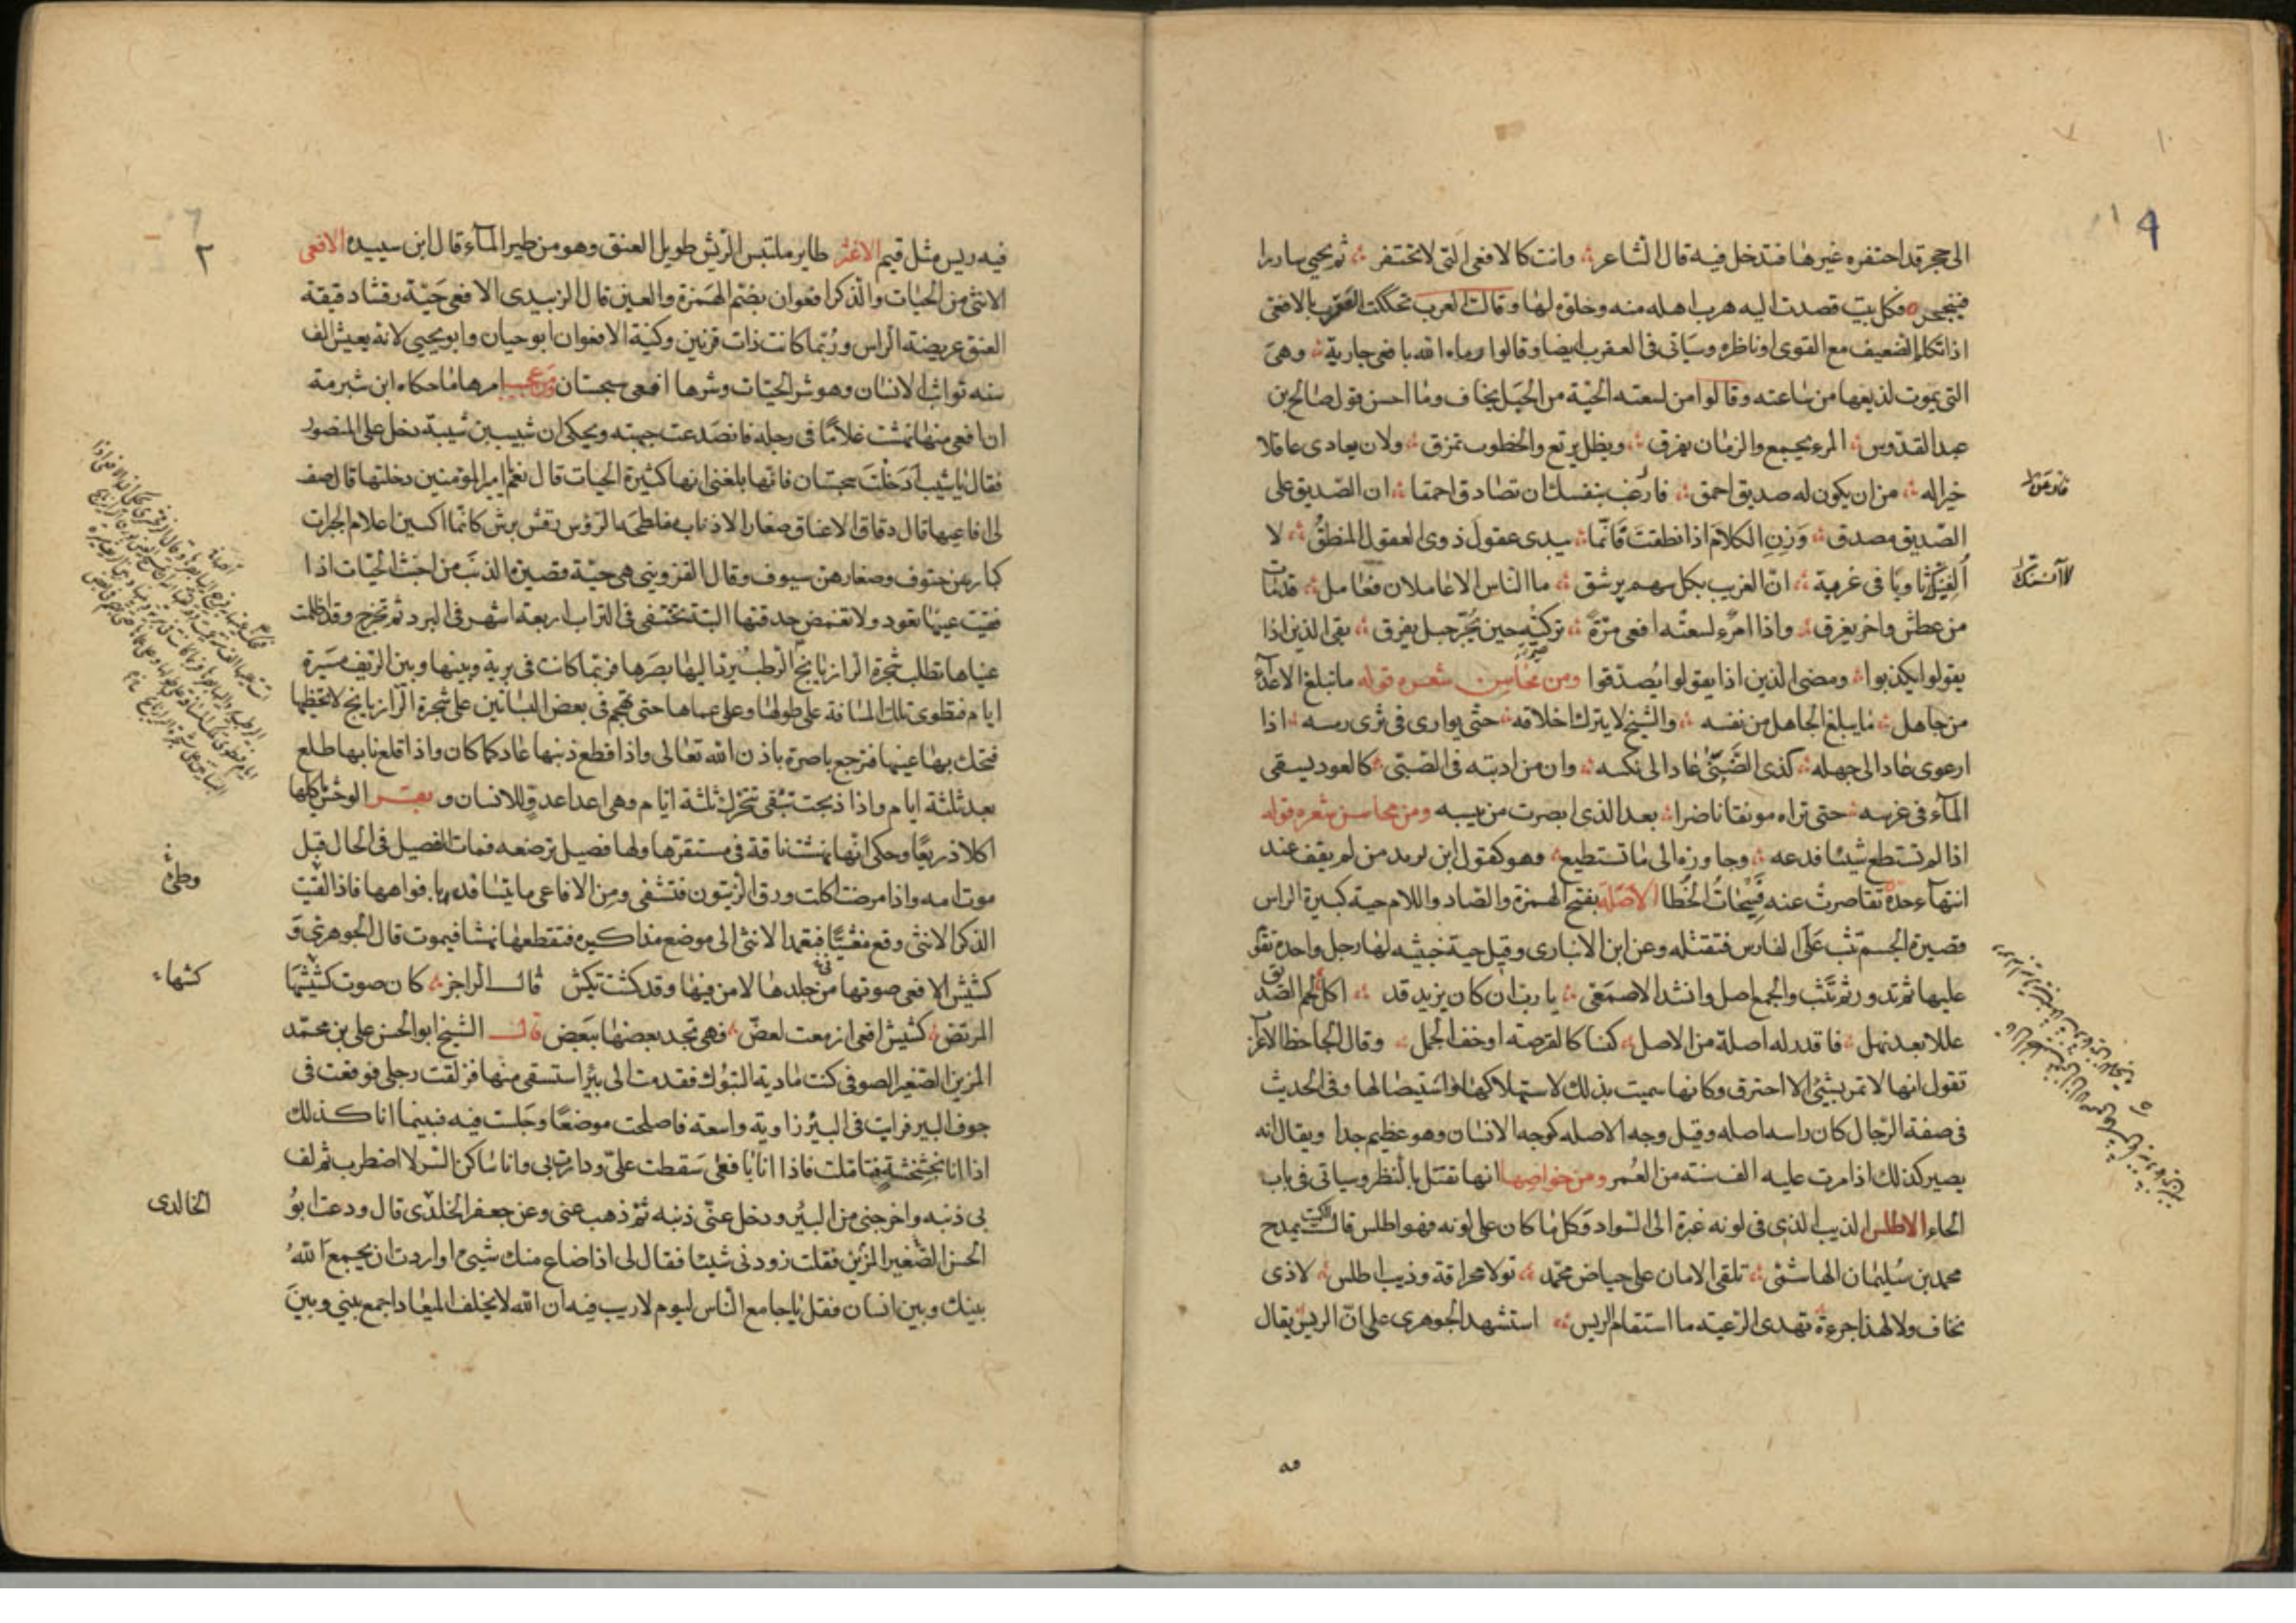 الى حجر قد احتفره غيرها فتدخل فيه قال الشاعر وانت كالافعى التى لا تحتفر ثم يجيى سادرا
فينجحر فكل بيت قصدت اليه هرب اهله منه وخلوه لها وقالت العرب تحككت العقرب بالافعى
اذا تكلم الضعيف مع القوى اوناظره وسياتى فى العقرب ايضا وقالوا رماه الله بافعى جارية وهى
التى يموت لذيعها من ساعته وقالوا من لسعته الحية من الحبل يخاف وما احسن قول صالح بن
عبد القدوس المرء يجمع والزمان يفرق ويظل يرقع والخطوب تمزق ولان يعادى عاقلا
خيرا له من ان يكون له صديق احمق فارغب بنفسك ان تصادق احمقا ان الصديق على
الصديق مصدق وَزِنِ الكلام اذا نطقت فَانّما يبدى عقولَ ذوى العقول المنطقُ لا
اُلفِيَنَّك ثاويًا فى غربة انّ الغريب بكل سهم يرشق ما الناس الا عاملان فعامل قد مات
من عطش واخر يغرق واذا امرُء لسعتْه افعى مرّةً تركتْه حين يُجَرّ حبل يفرق بقى الذين اذا
يقولوا يكذبوا ومضى الذين اذا يقولوا يُصدّقوا ومن محاسن شعره قوله ما تبلغ الاعدآء
من جاهل ما يبلغ الجاهل من نفسه والشيخ لا يترك اخلاقه حتى يوارى فى ثرى رمسه اذا
ارعوى عاد الى جهله كذى الضَّنى عاد الى نكسه وان من ادبته فى الصبى كالعود يسقى
المآء فى غرسه حتى تراه مونقا ناضرا بعد الذى ابصرت من يبسه ومن محاسن شعره قوله
اذا لم تستطع شيئا فدعه وجاوزه الى ما تستطيع وهو كقول ابن دريد من لم يقف عند
انتهآء حده تقاصرت عنه فَسِيْحَاتُ الخُطا الاَصَلَة بفتح الهمزة والصاد واللام حية كبيرة الراس
قصيرة الجسم تثب عَلَى الفارس فتقتله وعن ابن الانبارى وقيل حية خبيثه لها رجل واحدة تقوم
عليها ثم تدور ثم تَثب والجمع اصل وانشد الاصمَعى يا رب ان كان يزيد قد اكل لحم الصديق
عللا بعد نهل فاقدر له اصلة من الاصل كبسا كالقرصة اوخف الجمل وقال الجاحظ الاعراب
تقول انها لا تمر بشئ الا احترق وكانها سميت بذلك لاستهلاكها واستيصالها وفى الحديث
فى صفة الدجال كان راسه اصله وقيل وجه الاصله كوجه الانسان وهو عظيم جدا ويقال انه
يصير كذلك اذا مرت عليه الف سنة من العُمر ومن خواصها انها تقتل بالنظر وسياتى فى باب
الحاء الاطلس الذيب الذى فى لونه غبرة الى السواد وَكل ما كان على لونه فهو اطلس قال الكميت يمدح
محمد بن سُليمان الهاشمى تلقى الامان على حياض محمد ثولا مخرافة وذيب اطلس لاذى
تخاف ولا لهذا جرءة تهدى الرعيته ما استقام الريس استشهد الجوهرى على انّ الريس يقال
لا آنستك
فيه ريس مثل قيم الاغثر طاير ملتبس الريش طويل العنق وهو من طير المآء قال ابن سيده الافعى
الانثى من الحيات والذكر افعوان بضم الهَمزة والعين قال الزبيدى الافعى حَيَّة رقشا دقيقة
العنق عريضة الراس ورُبّما كانت ذات قرنين وكنية الافعوان ابو حيان وابو يحيى لانه يعيش الف
سنه تواثب الانسان وهو شر الحيّات وشرها افعى سجستان ومن عجيب امرها ما حكاه ابن شبرمة
ان افعى منها نهشت غلامًا فى رجله فانصَدعت جبهته ويحكى ان شبيب بن شيبة دخل على المنصور
فقال يا شبيب اَدَخَلْتَ سجستان فانها بلغنى انها كثيرة الحيات قال نعم يا امير المؤمنين دخلتها قال صف
لى افاعيها قال دقاق الاعناق صغار الاذناب مفلطحة الرؤس رقش برش كانّما اكسين اعلام الحبرات
كبارهن حتوف وصغارهن سيوف وقال القزوينى هى حيّة قصيرة الذنب من اخبث الحيّات اذا
فقئت عينها تعود ولا تغمض حدقتها البتة تختفى فى التراب اربعة اشهر فى البرد ثم تخرج وقد اظلمت
عيناها تطلب شجرة الرازيانج الرطب يرتد اليها بصَرها فربما كانت فى برية وبينها وبين الريف مسيرة
ايام فتطوى تلك المسافة على طولها وعلى عماها حتى تهجم فى بعض البساتين على شجرة الرازيانج لا تخطيها
فتحك بها عينها فترجع باصرة باذن الله تعالى واذا قطع ذنبها عاد كما كان واذا قلع نابها طلع
بعد ثلثة ايام واذا ذبحت تبقى تتحرك ثلثة ايام وهى اعدا عدو للانسان وبقر الوحش ياكلها
اكلا ذريعًا وحكى انها نهشت ناقة فى مستقرّها ولها فصيل ترضعه فمات الفصيل فى الحال قبل
موت امه واذا مرضت اكلت ورق الزيتون فتشفى ومن الافاعى ما يتسافد بافواهها فاذا لقيت
الذكر الانثى وقع مغشيًّا فتعمد الانثى الى موضع مذاكيره فتقطعها نهشا فيموت قال الجوهرىّ وَ
كشيش الافعى صوتها من جلدها لا من فيها وقد كشت تكش قال الراجز كان صوت كشيشها
المرتض كشيش افعى ازمعت لعض فهى تجد بعضها ببَعض قال الشيخ ابو الحسن على بن محمّد
المزين الصغير الصوفى كنت مادية التبوك فقدمت الى بئر استسقى منها فزلقت رجلى فوقعت فى
جوف البير فرايت فى البئر زاوية واسعة فاصلحت موضعًا وجَلست فيه فبينما انا كذلك
اذا انا بخشخشةٍ فتاملت فاذا انا بافعى سَقطت علىّ ودارت بى وانا ساكن السّر لا اضطرب ثم لف
بى ذنبه واخرجنى من البئر ودخل عنّى ذنبه ثم ذهب عنى وعن جعفر الخلدى قال ودعت ابوُ
الحسن الصّغير المزين فقلت زودنى شيئا فقال لى اذا ضاع منك شيئ اواردت ان يجمع اللهُ
بينك وبين انسان فقل يا جامع الناس ليوم لا ريب فيه ان الله لا يخلف الميعاد اجمع بينى وبينَ
وطئ
كشها
الخالدى